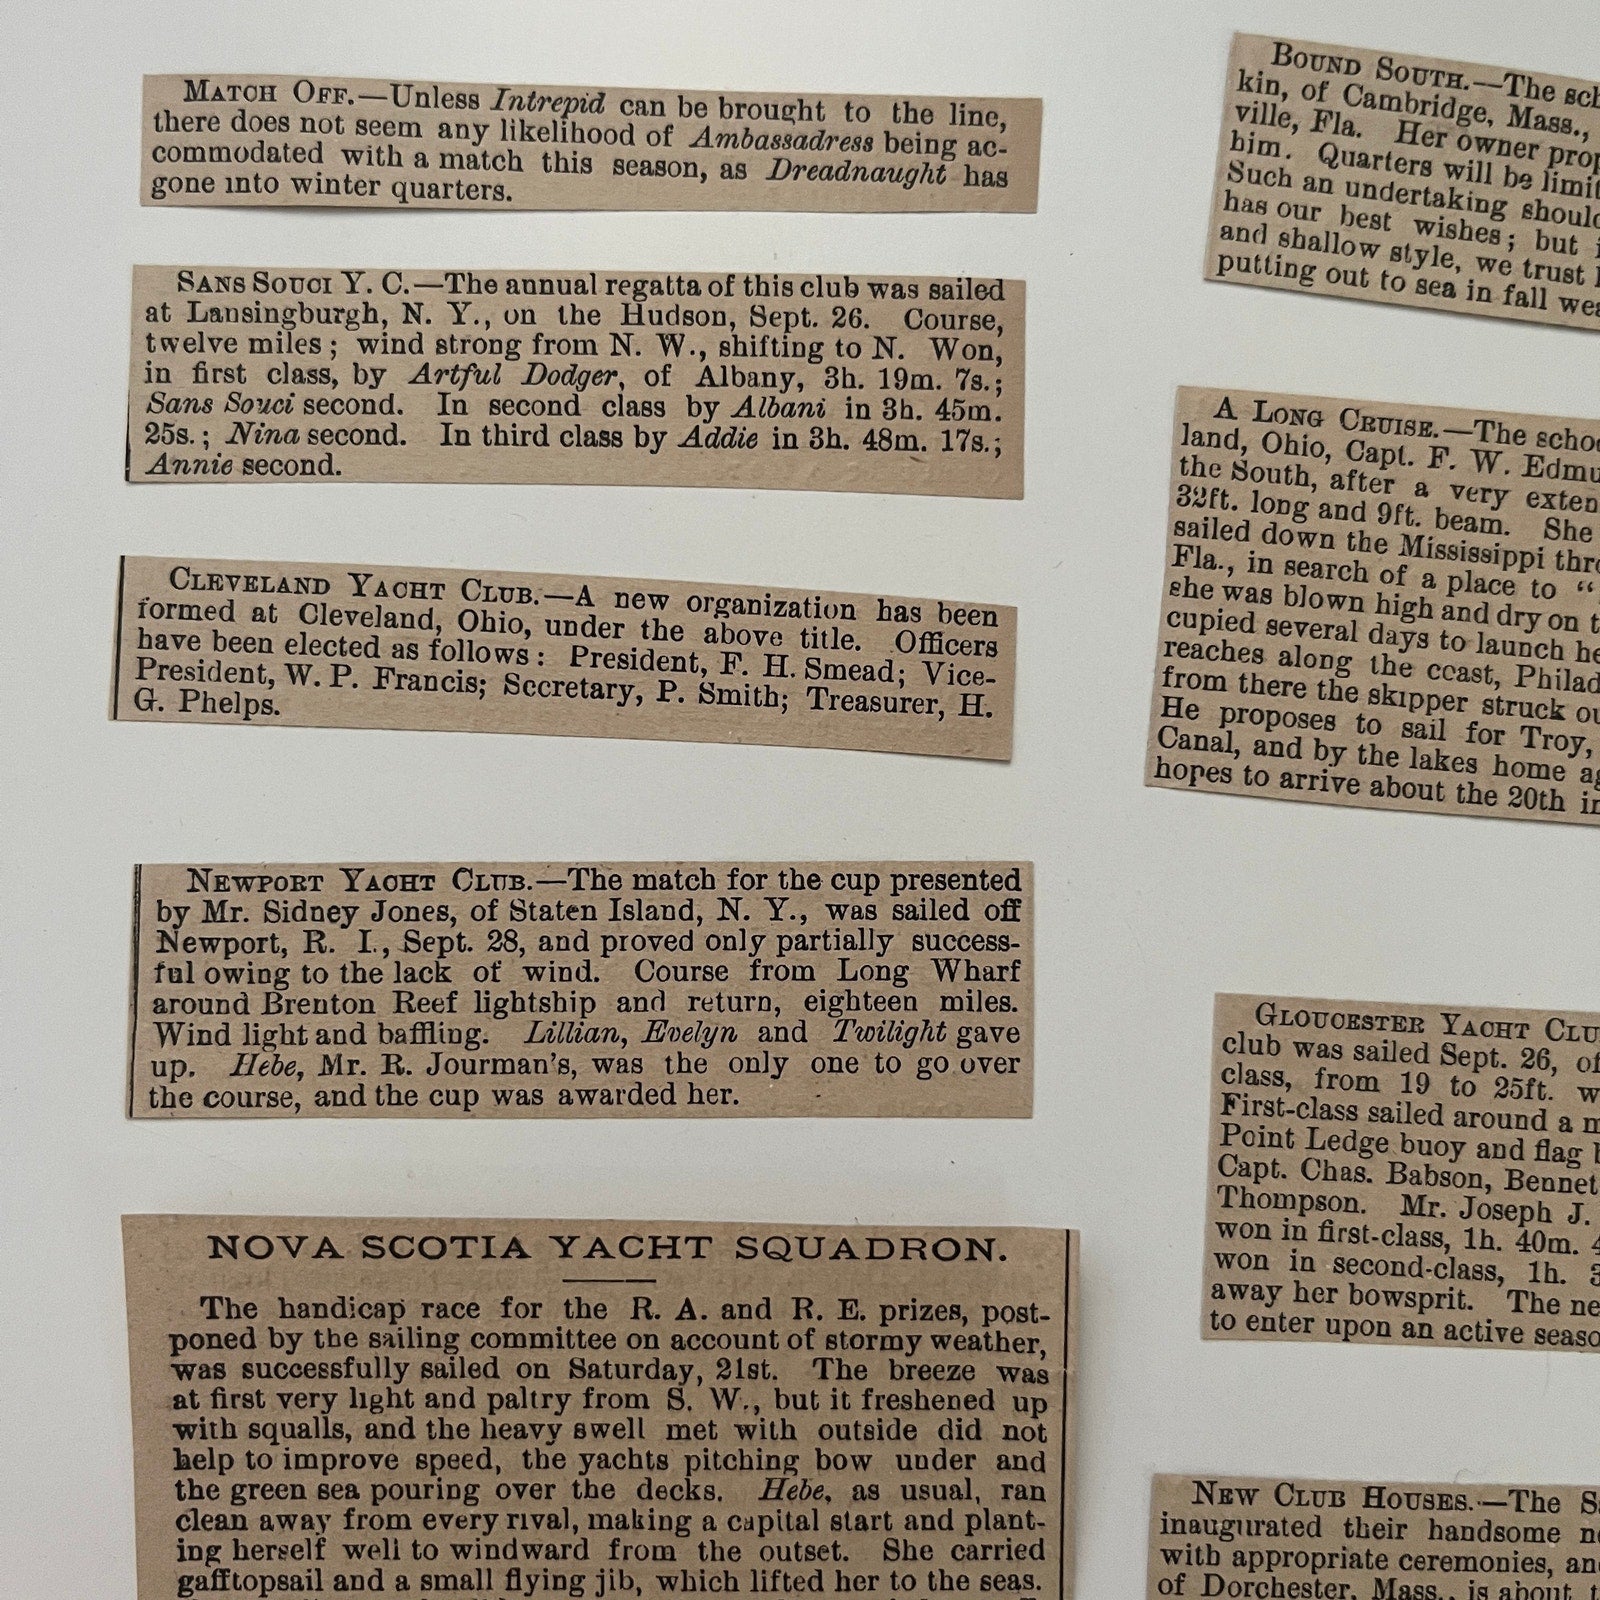 MATCH OFF.—Unless Intrepid can be brought to the line,
there does not seem any likelihood of Ambassadress being ac-
commodated with a match this season, as Dreadnaught has
gone into winter quarters.
SANS SOUCI Y. C.—The annual regatta of this club was sailed
at Lansingburgh, N. Y., on the Hudson, Sept. 26. Course,
twelve miles; wind strong from N. W., shifting to N. Won,
in first class, by Artful Dodger, of Albany, 3h. 19m. 7s.;
Sans Souci second. In second class by Albani in 3h. 45m.
25s.; Nina second. In third class by Addie in 3h. 48m. 17s.;
Annie second.
CLEVELAND YACHT CLUB.—A new organization has been
formed at Cleveland, Ohio, under the above title. Officers
have been elected as follows: President, F. H. Smead; Vice-
President, W. P. Francis; Secretary, P. Smith; Treasurer, H.
G. Phelps.
NEWPORT YACHT CLUB.—The match for the cup presented
by Mr. Sidney Jones, of Staten Island, N. Y., was sailed off
Newport, R. I., Sept. 28, and proved only partially success-
ful owing to the lack of wind. Course from Long Wharf
around Brenton Reef lightship and return, eighteen miles.
Wind light and baffling. Lillian, Evelyn and Twilight gave
up. Hebe, Mr. R. Jourman's, was the only one to go over
the course, and the cup was awarded her.
NOVA SCOTIA YACHT SQUADRON.
The handicap race for the R. A. and R. E. prizes, post-
poned by the sailing committee on account of stormy weather,
was successfully sailed on Saturday, 21st. The breeze was
at first very light and paltry from S. W., but it freshened up
with squalls, and the heavy swell met with outside did not
help to improve speed, the yachts pitching bow under and
the green sea pouring over the decks. Hebe, as usual, ran
clean away from every rival, making a capital start and plant-
ing herself well to windward from the outset. She carried
gafftopsail and a small flying jib, which lifted her to the seas.
BOUND SOUTH.—The sch
kin, of Cambridge, Mass.,
ville, Fla. Her owner prop
him. Quarters will be limit
Such an undertaking should
has our best wishes; but
and shallow style, we trust
putting out to sea in fall wea
A LONG CRUISE.—The schoo
land, Ohio, Capt. F. W. Edmu
the South, after a very exten
32ft. long and 9ft. beam. She
sailed down the Mississippi thro
Fla., in search of a place to "
she was blown high and dry on t
cupied several days to launch he
reaches along the coast, Philad
from there the skipper struck ou
He proposes to sail for Troy,
Canal, and by the lakes home ag
hopes to arrive about the 20th in
GLOUCESTER YACHT CLU
club was sailed Sept. 26, of
class, from 19 to 25ft. w
First-class sailed around a m
Point Ledge buoy and flag b
Capt. Chas. Babson, Bennet
Thompson. Mr. Joseph J.
won in first-class, 1h. 40m. 4
won in second-class, 1h. 3
away her bowsprit. The ne
to enter upon an active seaso
NEW CLUB HOUSES.—The S
inaugurated their handsome n
with appropriate ceremonies, an
of Dorchester, Mass., is about t